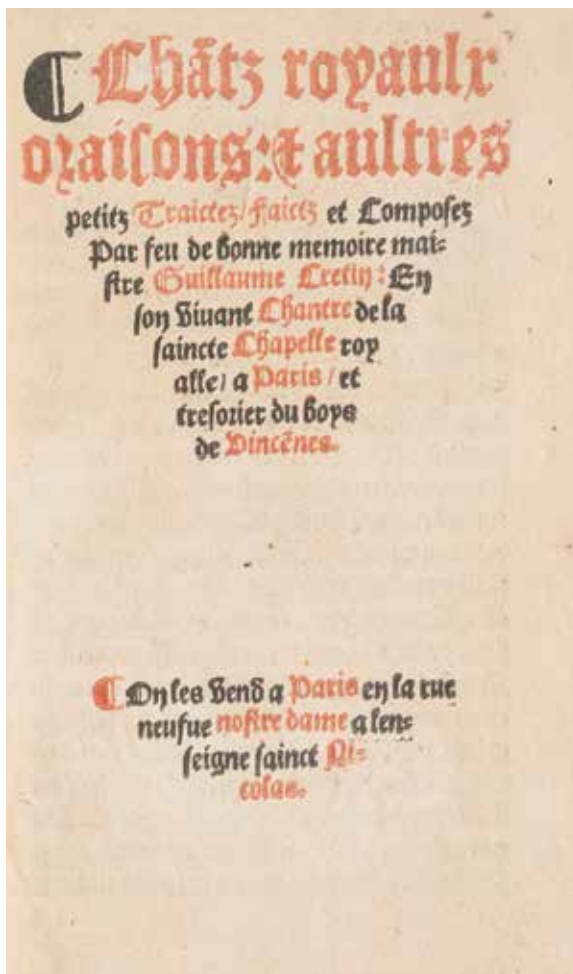 ⸿ Chãtz royaulx
oraisons: & aultres
petitz Traictez/ faictz et Composez
Par feu de bonne memoire mai⸗
stre Guillaume Cretin: En
son vivant Chantre de la
saincte Chapelle roy
alle/ a Paris/ et
tresorier du boys
de Vincẽnes.
⸿ On les vend a Paris en la rue
neufue nostre dame a len⸗
seigne sainct Ni⸗
colas.